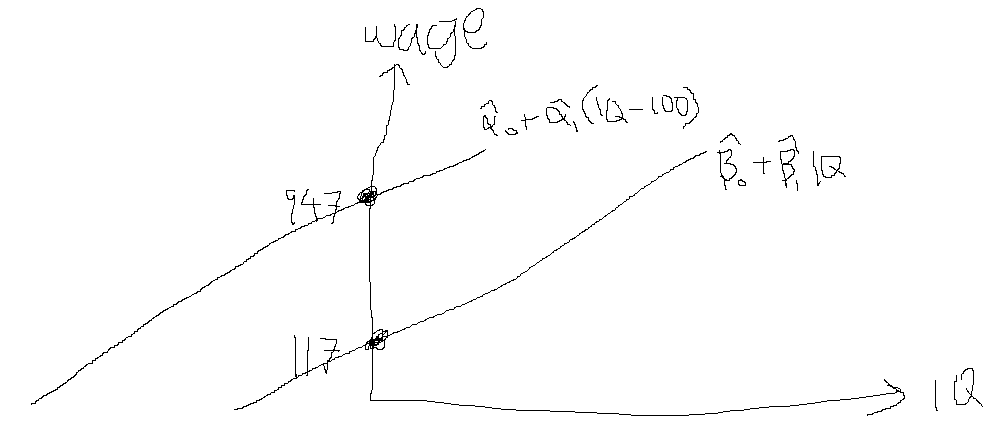 wage
α̂₀ + α̂₁(IQ-100)
β̂₀ + β̂₁IQ
947
117
IQ